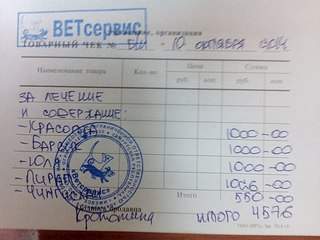 ВЕТсервис
организация
ТОВАРНЫЙ ЧЕК № б/н - 10 октября 2014
Наименование товара Кол-во Цена Сумма
руб. коп. руб. коп.
ЗА ЛЕЧЕНИЕ
И СОДЕРЖАНИЕ:
- КРАСОТКА 1000-00
- БАРСИК 1000-00
- ЮЛА 1000-00
- ПИРАТ
- ЧИНГИСХАН 550-00
«Ветсервис»
продавца
ИТОГО 4576